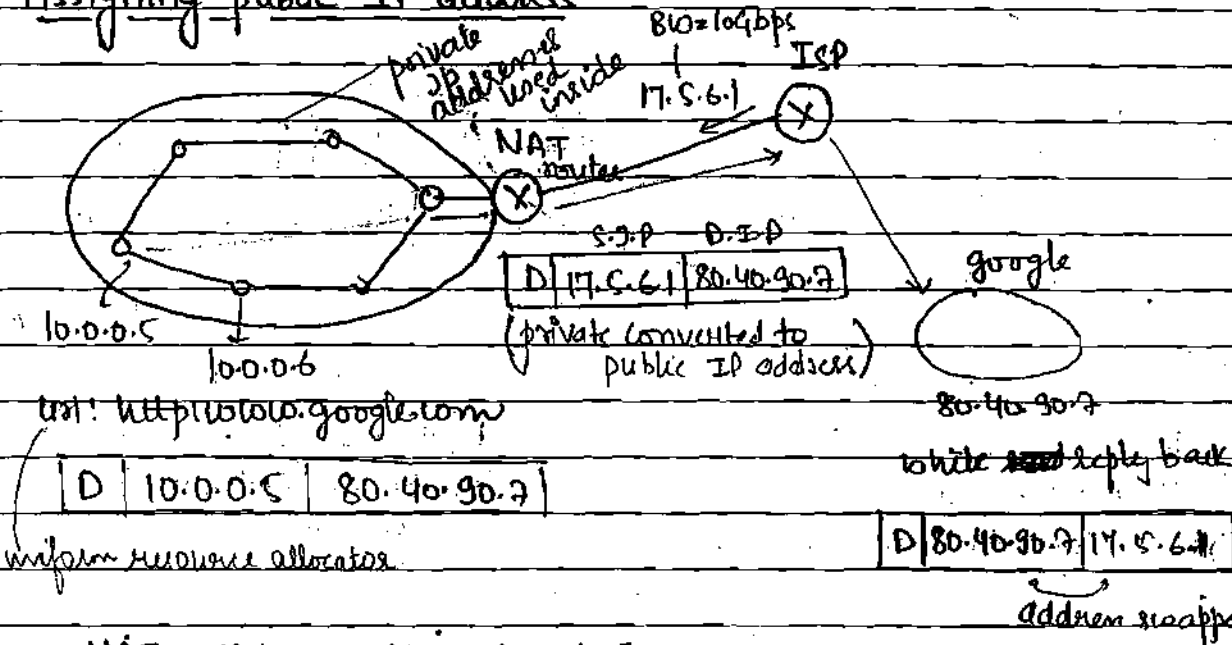 Assigning public IP address
private
IP
addresses
used
inside
BW=10Gbps
ISP
17.5.6.1
NAT
router
S.I.P D.I.P
D 17.5.6.1 80.40.90.7
(private converted to
public IP address)
google
80.40.90.7
10.0.0.5
10.0.0.6
url: http:www.google.com
D 10.0.0.5 80.40.90.7
uniform resource allocator
while reply back
D 80.40.90.7 17.5.6.1
address swapp